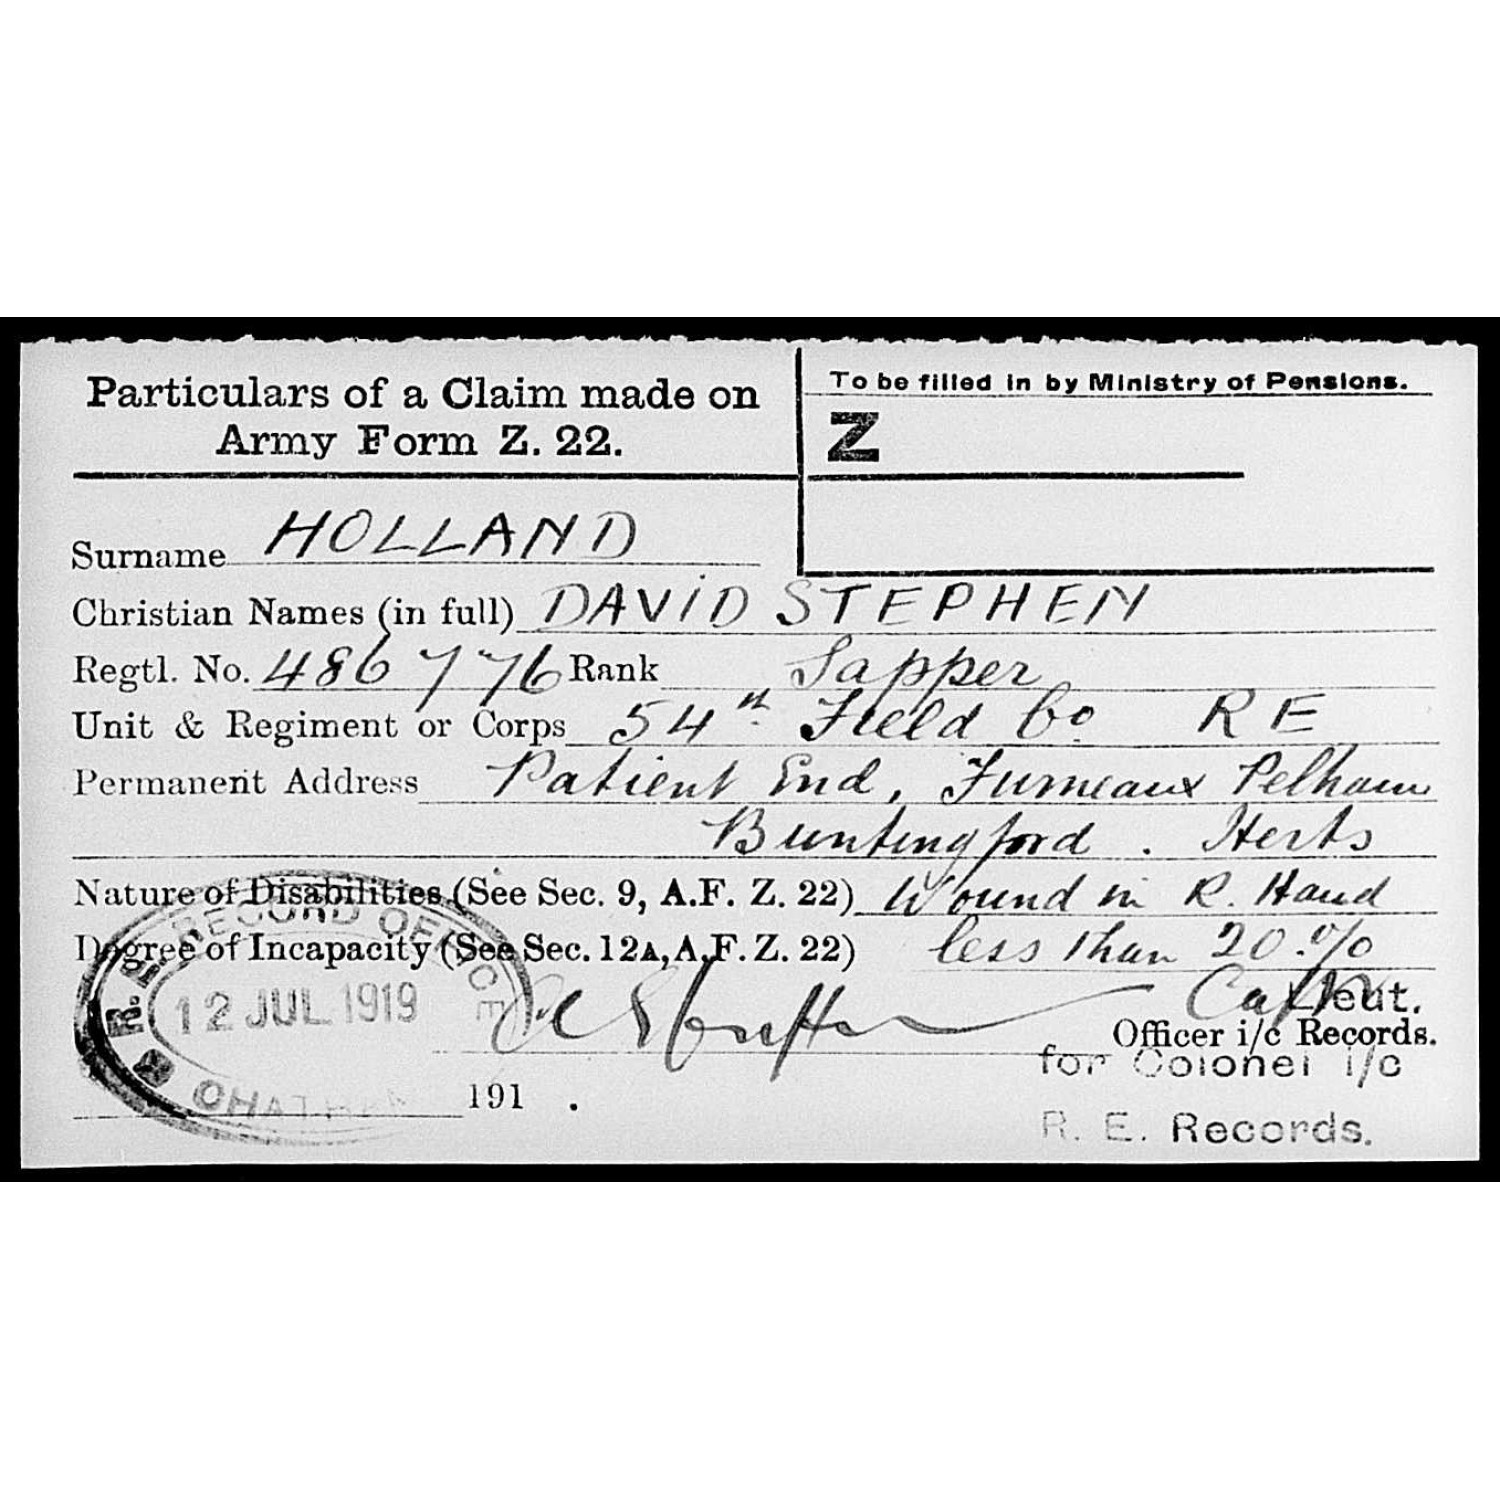 Particulars of a Claim made on
Army Form Z. 22.
To be filled in by Ministry of Pensions.
Z
Surname HOLLAND
Christian Names (in full) DAVID STEPHEN
Regtl. No. 486776 Rank Sapper
Unit & Regiment or Corps 54th Field Co RE
Permanent Address Patient End, Furneaux Pelham
Buntingford . Herts
Nature of Disabilities (See Sec. 9, A.F. Z. 22) Wound in R. Hand
Degree of Incapacity (See Sec. 12A, A.F. Z. 22) less than 20.%
R.E. RECORD OFFICE
12 JUL 1919
CHATHAM
Capt
Lieut.
Officer i/c Records.
for Colonel i/c
191 .
R. E. Records.